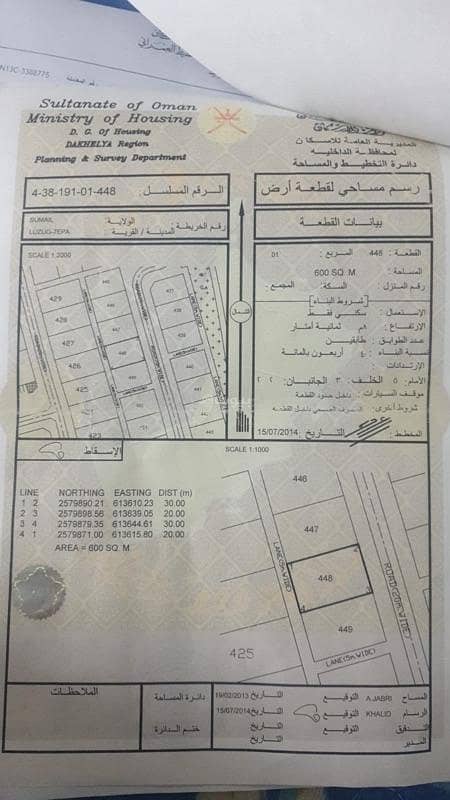 N13C-3388775
Sultanate of Oman
Ministry of Housing
D. G. Of Housing
DAKHELYA Region
Planning & Survey Department
المديرية العامة للاسكان
لمحافظة الداخلية
دائرة التخطيط والمساحة
4-38-191-01-448
الرقم المسلسل :
رسم مساحي لقطعة أرض
SUMAIL
الولاية :
LUZUG-7EPA
المدينة / القرية :
رقم الخريطة :
بيانات القطعة
SCALE 1:2000
القطعة : 448
المربع : 01
المساحة : 600 SQ. M
رقم المنزل :
السكة :
المجمع :
شروط البناء
الاستعمال : سكني فقط
الارتفاع : ٨م ثمانية أمتار
عدد الطوابق : طابقين
نسبة البناء : ٤٠ أربعون بالمائة
الإرتدادات :
الأمام : ٥ الخلف : ٣ الجانبان : ٢ ٢
موقف السيارات : داخل حدود القطعة
شروط أخرى : الصرف الصحي داخل القطعه
المخطط :
التاريخ
15/07/2014
الشمال
429
428
427
426
425
423
431
437
438
439
440
الإسقاط
SCALE 1:1000
LINE NORTHING EASTING DIST (m)
1 2 2579890.21 613610.23 30.00
2 3 2579898.56 613639.05 20.00
3 4 2579879.35 613644.61 30.00
4 1 2579871.00 613615.80 20.00
AREA = 600 SQ. M
446
447
448
449
425
LANE(5m WIDE)
ROAD(20m WIDE)
LANE(5m WIDE)
الملاحظات
دائرة المساحة
ختم الدائرة
المساح A.JABRI التوقيع التاريخ 19/02/2013
الرسام KHALID التوقيع التاريخ 15/07/2014
التدقيق التوقيع التاريخ
المدير التاريخ